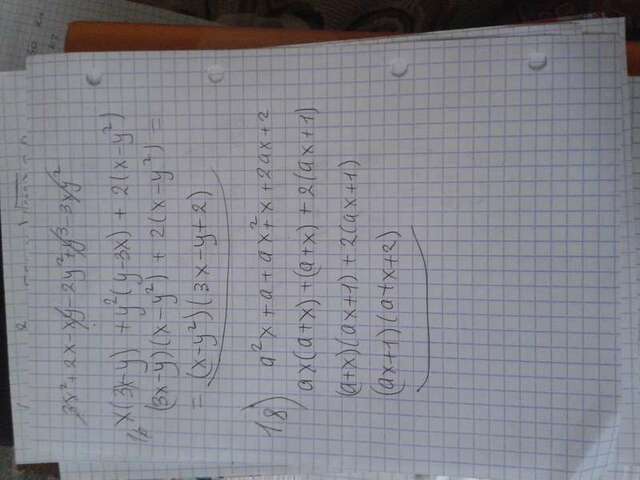 3x² + 2x - xy - 2y² + y³ - 3xy²
x(3x-y) + y²(y-3x) + 2(x-y²)
(3x-y)(x-y²) + 2(x-y²) =
= (x-y²)(3x-y+2)
18) a²x + a + ax² + x + 2ax + 2
ax(a+x) + (a+x) + 2(ax+1)
(a+x)(ax+1) + 2(ax+1)
(ax+1)(a+x+2)